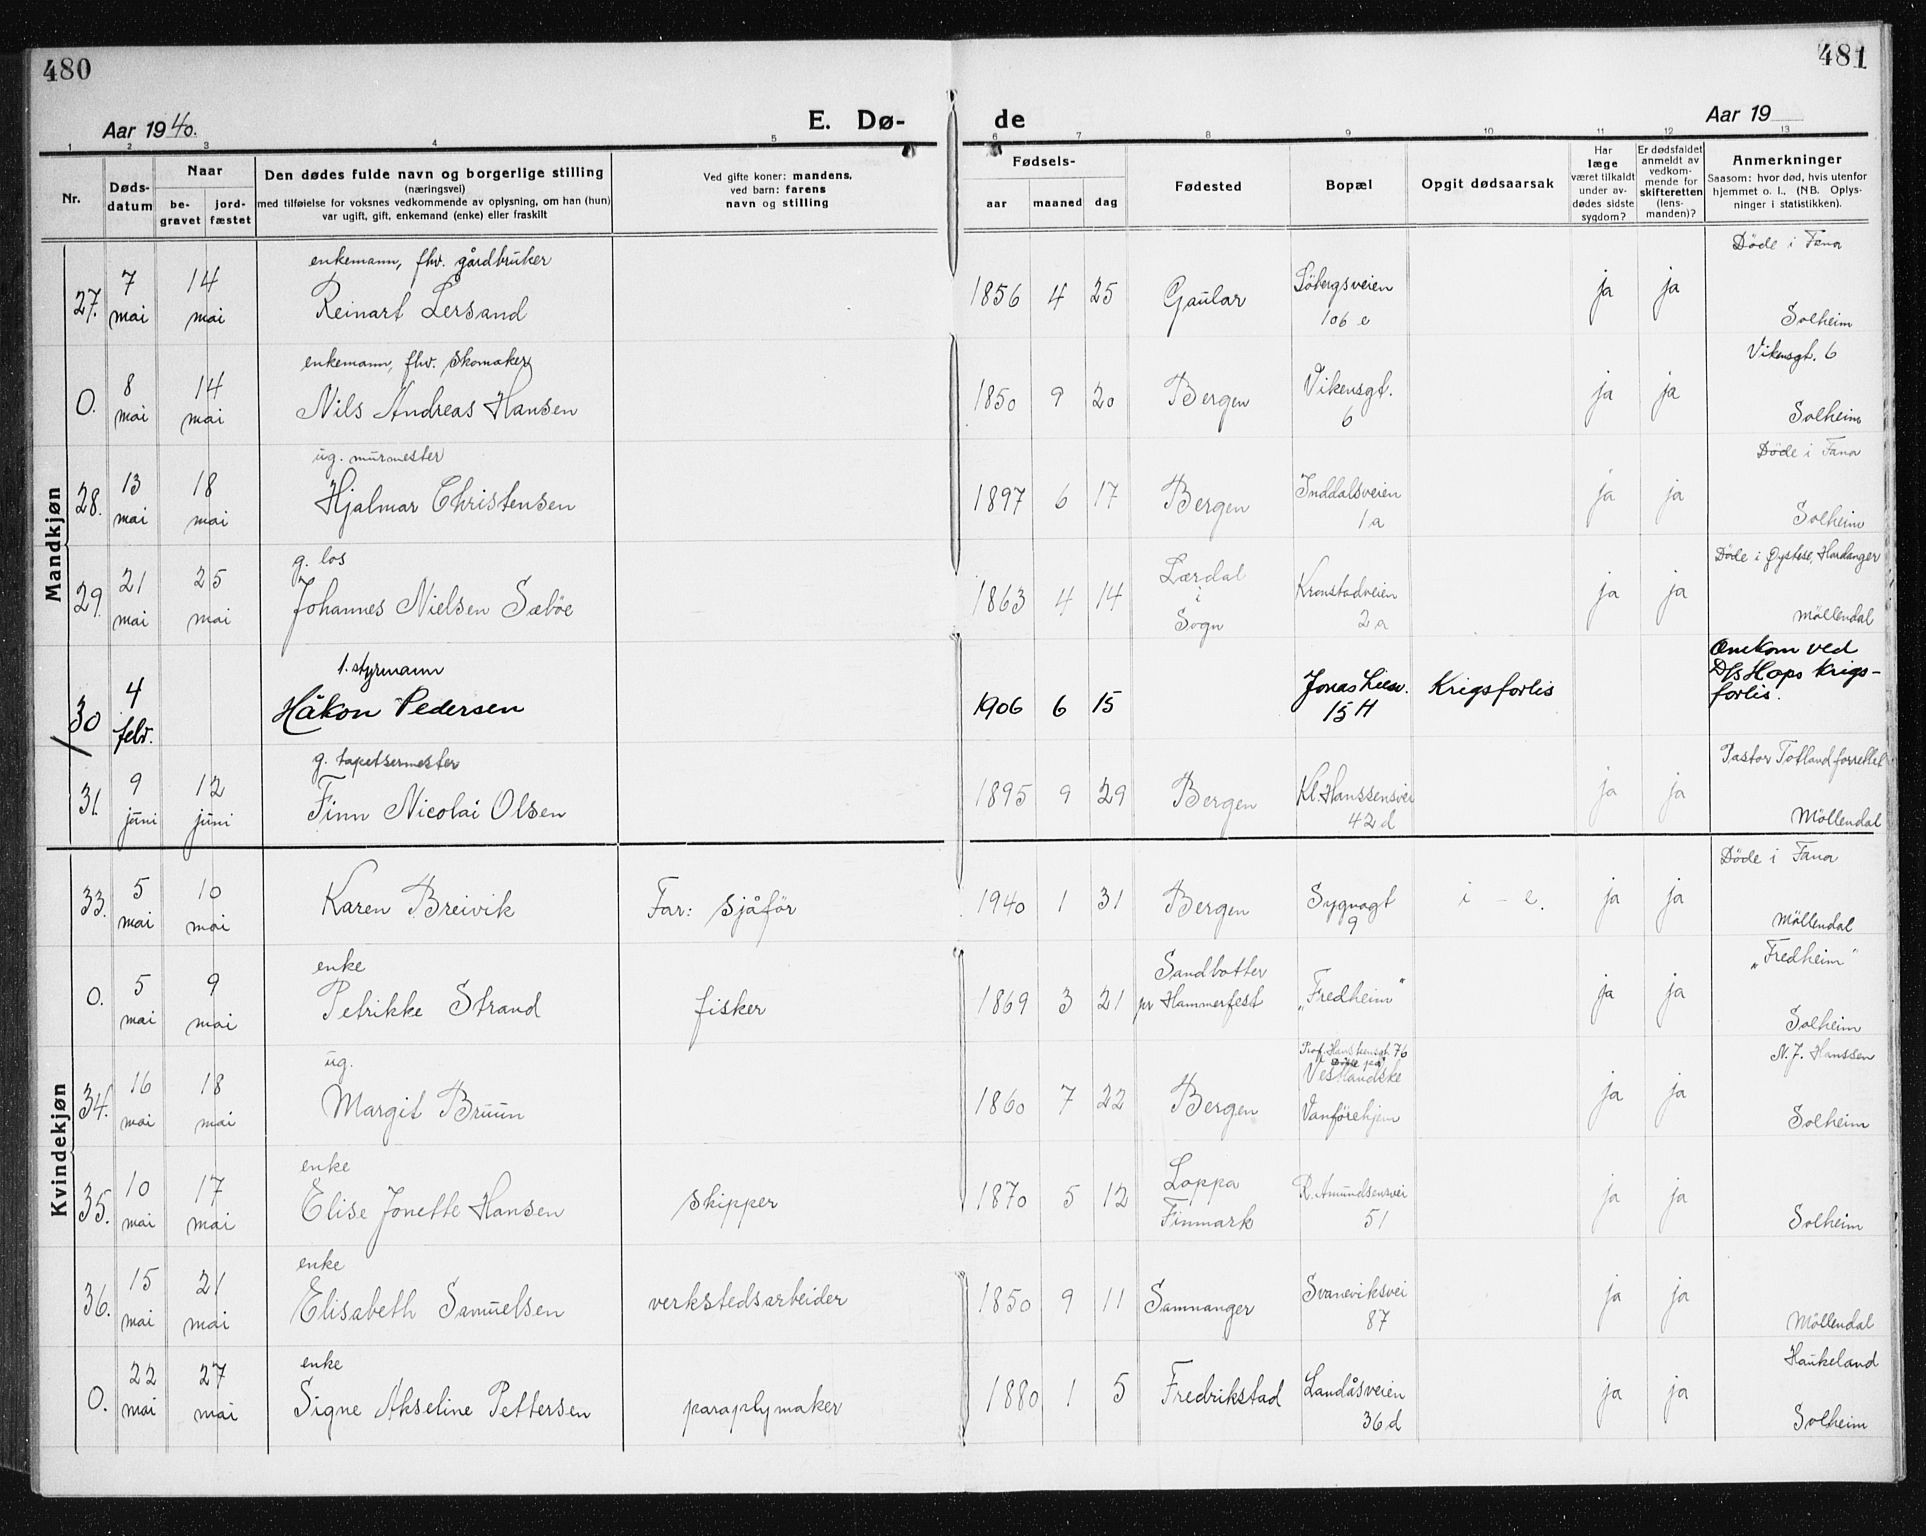 480
481
Aar 1940.
E. Dø-
de
Aar 19
1 2 3 4 5 6 7 8 9 10 11 12 13
Nr.
Døds-
datum
Naar
be-
gravet
jord-
fæstet
Den dødes fulde navn og borgerlige stilling
(næringsvei)
med tilføielse for voksnes vedkommende av oplysning, om han (hun)
var ugift, gift, enkemand (enke) eller fraskilt
Ved gifte koner: mandens,
ved barn: farens
navn og stilling
Fødsels-
aar maaned dag
Fødested
Bopæl
Opgit dødsaarsak
Har
læge
været tilkaldt
under av-
dødes sidste
sygdom?
Er dødsfaldet
anmeldt av
vedkom-
mende for
skifteretten
(lens-
manden)?
Anmerkninger
Saasom: hvor død, hvis utenfor
hjemmet o. l., (NB. Oplys-
ninger i statistikken).
Mandkjøn
enkemann, fhv. gårdbruker Döde i Fana
27. 7 mai 14 mai Reinart Lersand 1856 4 25 Gaular Löbergsveien 106 e ja ja Solheim
enkemann, fhv. skomaker Vikensgt. 6
0. 8 mai 14 mai Nils Andreas Hansen 1850 9 20 Bergen Vikensgt. 6 ja ja Solheim
ug. murmester Döde i Fana
28. 13 mai 18 mai Hjalmar Christensen 1897 6 17 Bergen Inddalsveien 1a ja ja Solheim
g. los Döde i Øystese, Hardanger
29. 21 mai 25 mai Johannes Nielsen Sæböe 1863 4 14 Lærdal i Sogn Kronstadveien 2a ja ja Möllendal
1. styrmann Omkom ved
30 4 febr. Håkon Pedersen 1906 6 15 Jonas Liesv. 15 H Krigsforlis D/s Hops krigs-
forlis.
g. tapetsermester Pastor Totland forrettet
31. 9 juni 12 juni Finn Nicolai Olsen 1895 9 29 Bergen Kl. Hanssensvei 42d ja ja Möllendal
Kvindekjøn
Döde i Fana
33. 5 mai 10 mai Karen Breivik Far: sjåför 1940 1 31 Bergen Sygnagt 9 i - e. ja ja Möllendal
enke Sandbotter „Fredheim"
0. 5 mai 9 mai Petrikke Strand fisker 1869 3 21 pr Hammerfest „Fredheim" ja ja Solheim
ug. Prof. Hansteensgt. 76 N. J. Hanssen
34. 16 mai 18 mai Margit Bruun 1860 7 22 Bergen Vestlandske Vanförehjem ja ja Solheim
enke
35. 10 mai 17 mai Elise Jonette Hansen skipper 1870 5 12 Loppa Finmark R. Amundsensvei 51 ja ja Solheim
enke
36. 15 mai 21 mai Elisabeth Samuelsen verkstedsarbeider 1850 9 11 Samnanger Svaneviksvei 87 ja ja Möllendal
enke Haukeland
0. 22 mai 27 mai Signe Akseline Pettersen paraplymaker 1880 1 5 Fredrikstad Landåsveien 36d ja ja Solheim